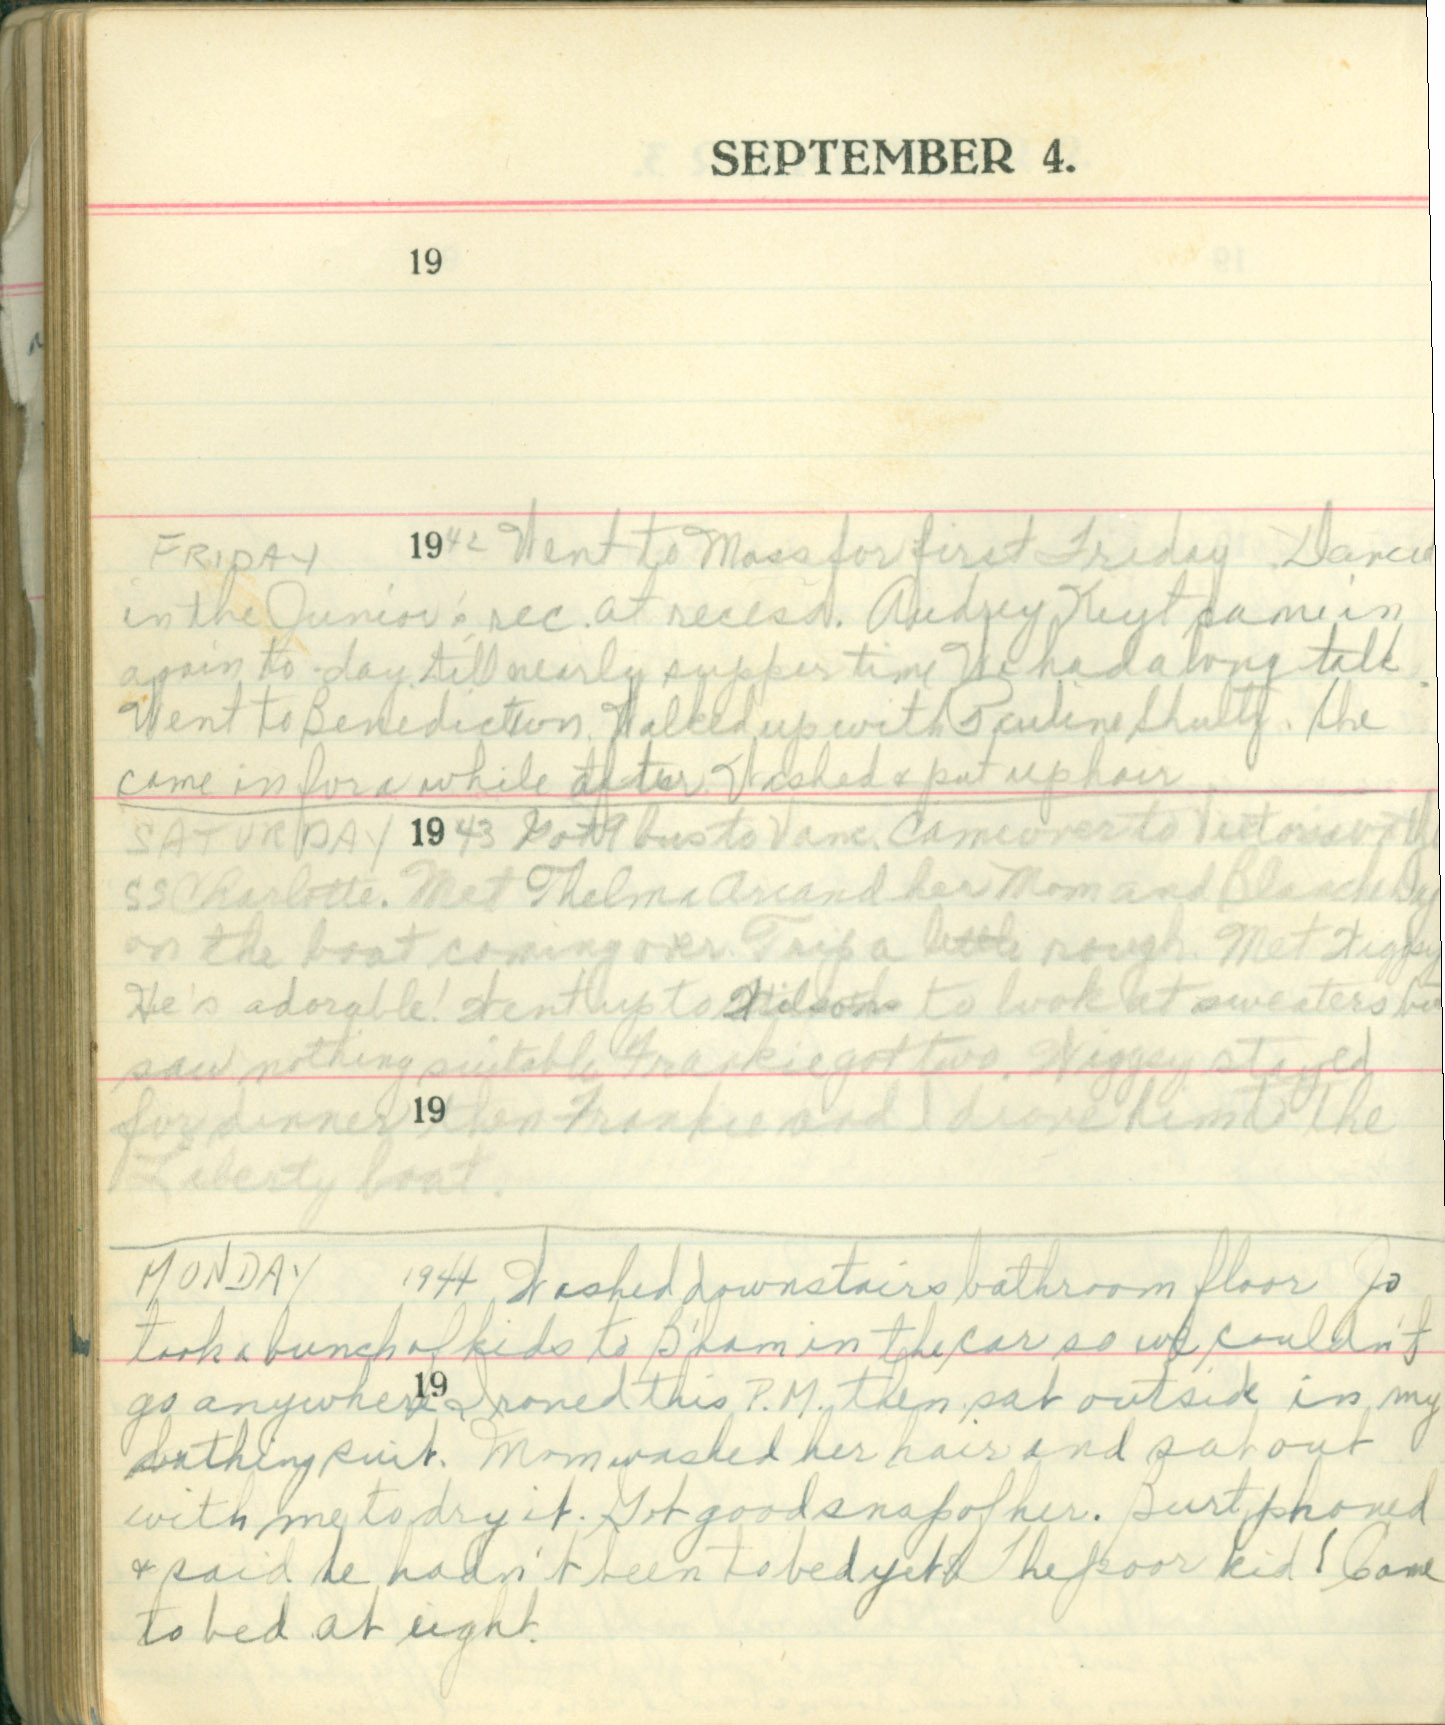 SEPTEMBER 4.
19
FRIDAY 1942 Went to Mass for first Friday. Danced
in the Junior's rec. at recess. Audrey Keyt came in
again to-day till nearly supper time. We had a long talk.
Went to Benediction. Walked up with Pauline Shultz. She
came in for a while after. Washed & put up hair
SATURDAY 1943 Got 9 bus to Vanc. Came over to Victoria on the
SS Charlotte. Met Thelma Arcand her Mom and
on the boat coming over. Trip a little rough. Met Wiggsy
He's adorable! Went up to Wilsons to look at sweaters but
saw nothing suitable. Frankie got two. Wiggsy stayed
for dinner then Frankie and I drove him to the
19
Liberty boat.
MONDAY 1944 Washed downstairs bathroom floor Jo
took a bunch of kids to B'ham in the car so we couldn't
go anywhere. Ironed this P.M. then sat outside in my
19
bathing suit. Mom washed her hair and sat out
with me to dry it. Got good snap of her. Burt phoned
& said he hadn't been to bed yet. The poor kid! Came
to bed at eight.